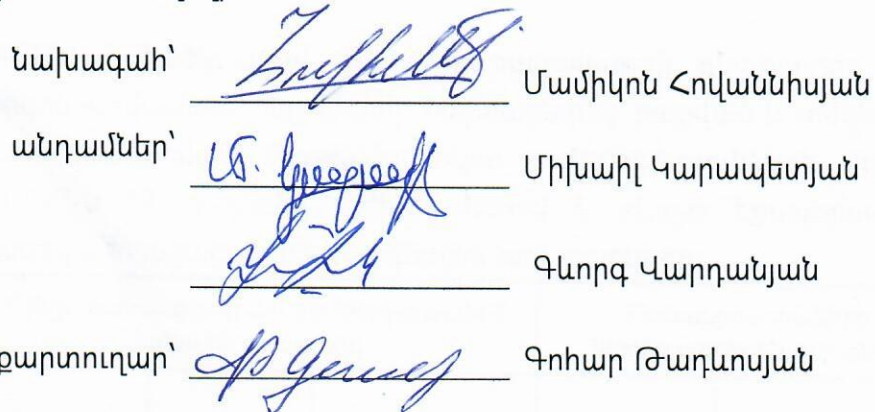 նախագահ՝ Մամիկոն Հովաննիսյան
անդամներ՝ Միխաիլ Կարապետյան
Գևորգ Վարդանյան
քարտուղար՝ Գոհար Թադևոսյան